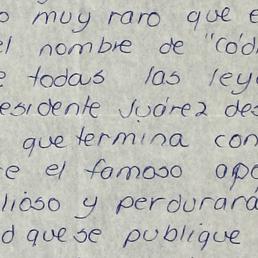 o muy raro que e
el nombre de "cód
e todas las ley
esidente Juárez des
que termina con
e el famoso apo
lioso y perdurará
d que se publique